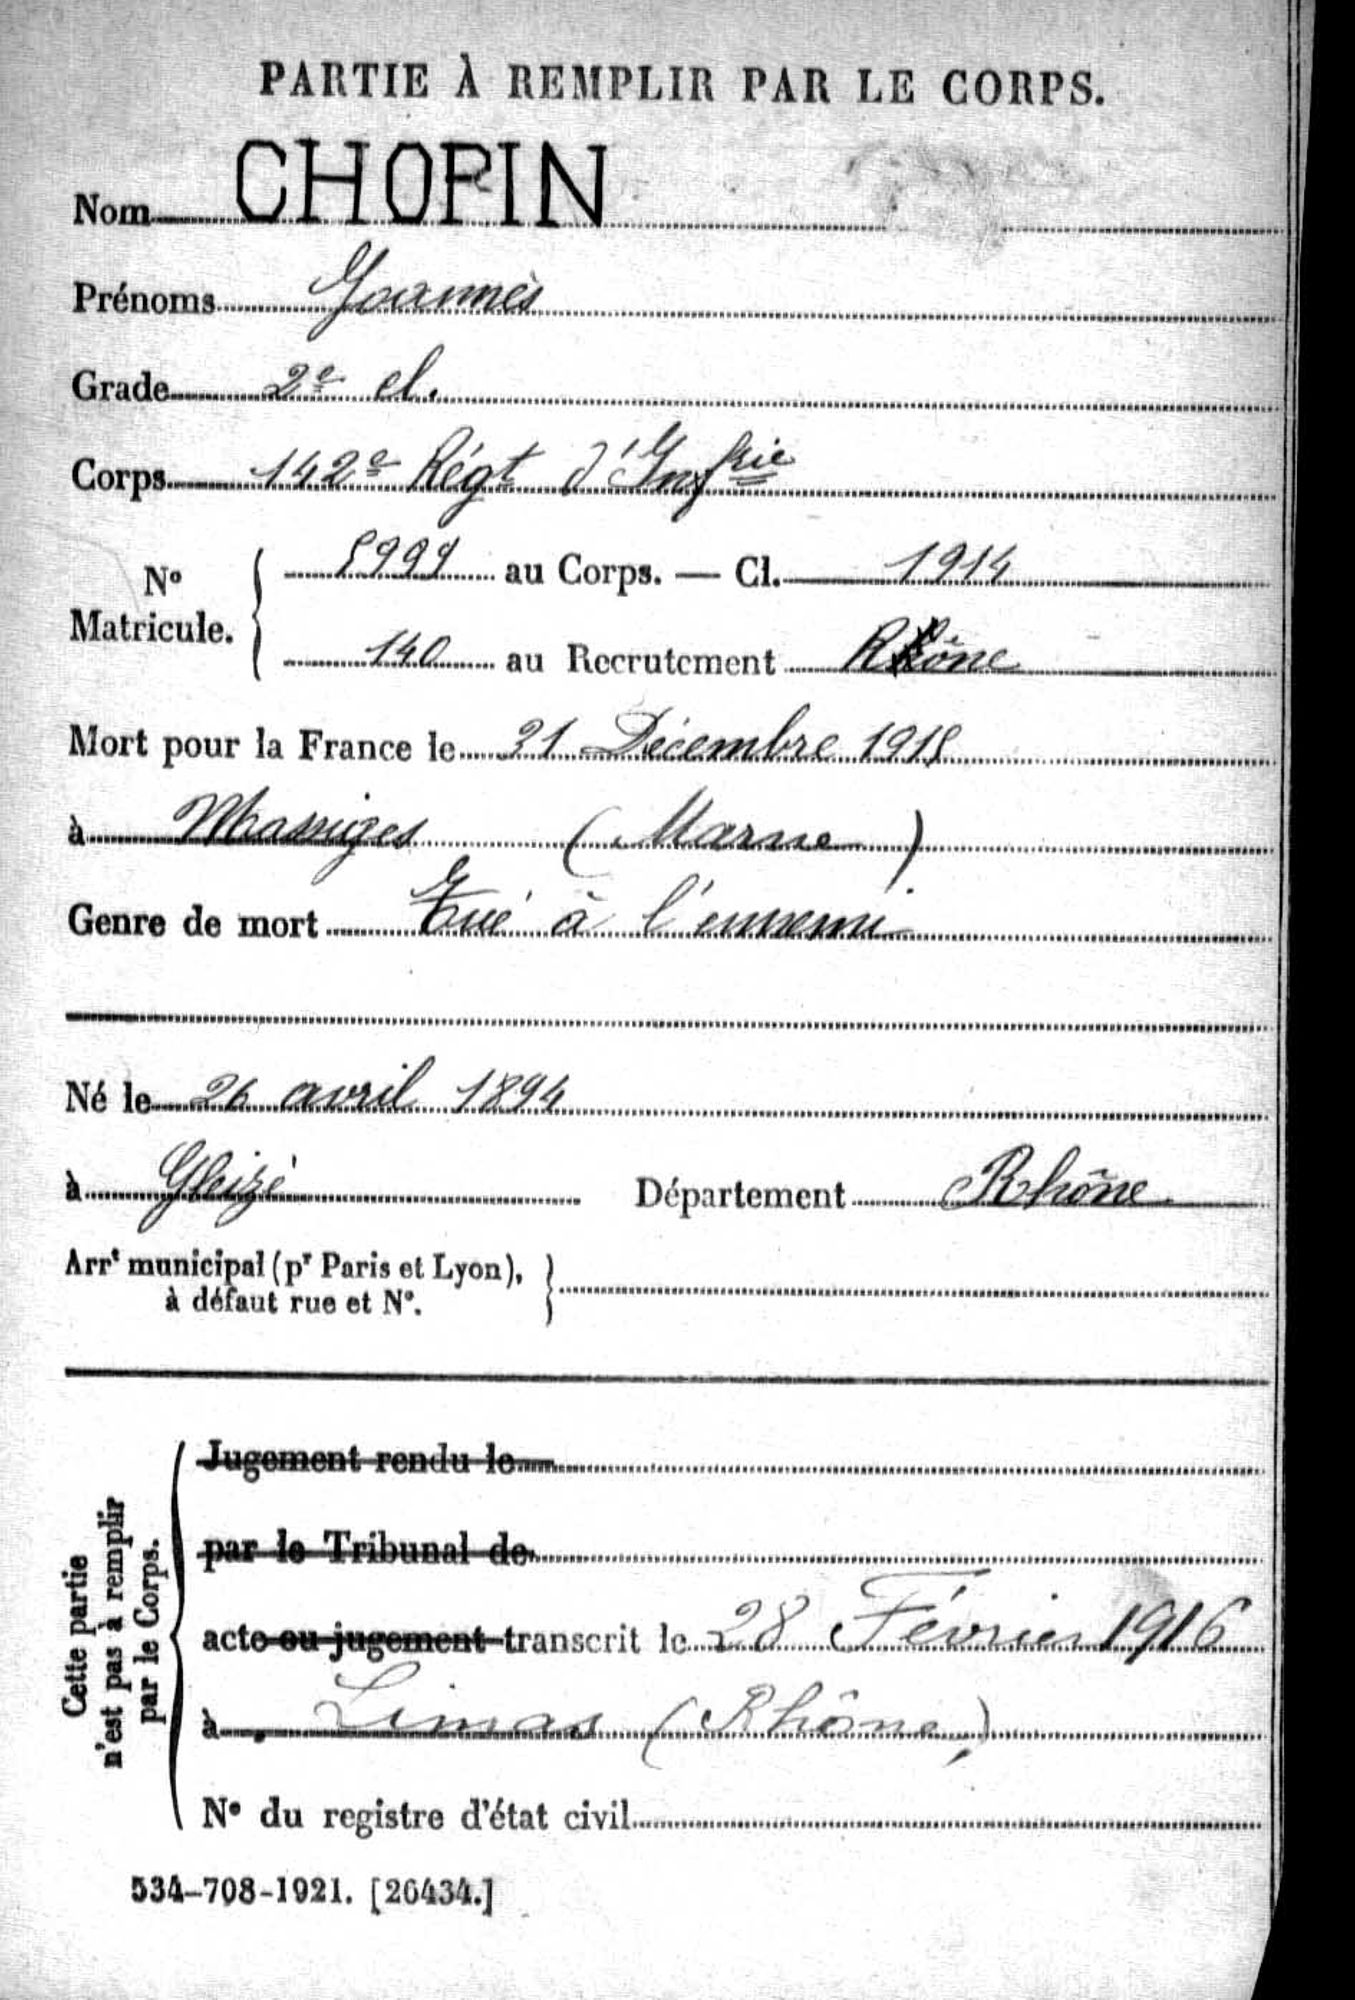 PARTIE À REMPLIR PAR LE CORPS.
Nom CHOPIN
Prénoms Joannès
Grade 2e cl.
Corps 142e Régt d'Infrie
No Matricule. { 5999 au Corps. — Cl. 1914
140 au Recrutement Rhône
Mort pour la France le 21 Décembre 1915
à Massiges (Marne)
Genre de mort Tué à l'ennemi
Né le 26 avril 1894
à Gleizé Département Rhône
Arrt municipal (pr Paris et Lyon), }
à défaut rue et No.
Cette partie n'est pas à remplir par le Corps.
Jugement rendu le
par le Tribunal de
acte ou jugement transcrit le 28 Février 1916
à Limas (Rhône)
No du registre d'état civil
534-708-1921. [26434.]